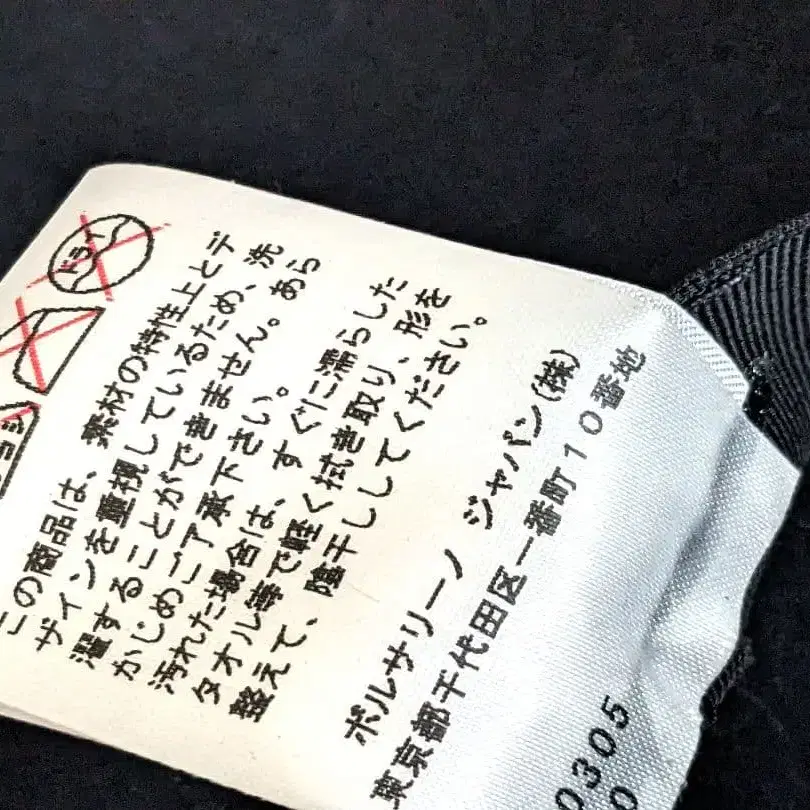 ドライ
この商品は、素材の特性上とデ
ザインを重視しているため、洗
濯することができません。あら
かじめご了承下さい。
汚れた場合は、すぐに濡らした
タオル等で軽く拭き取り、形を
整えて、陰干ししてください。
ボルサリーノ ジャパン(株)
東京都千代田区一番町10番地
0305
0